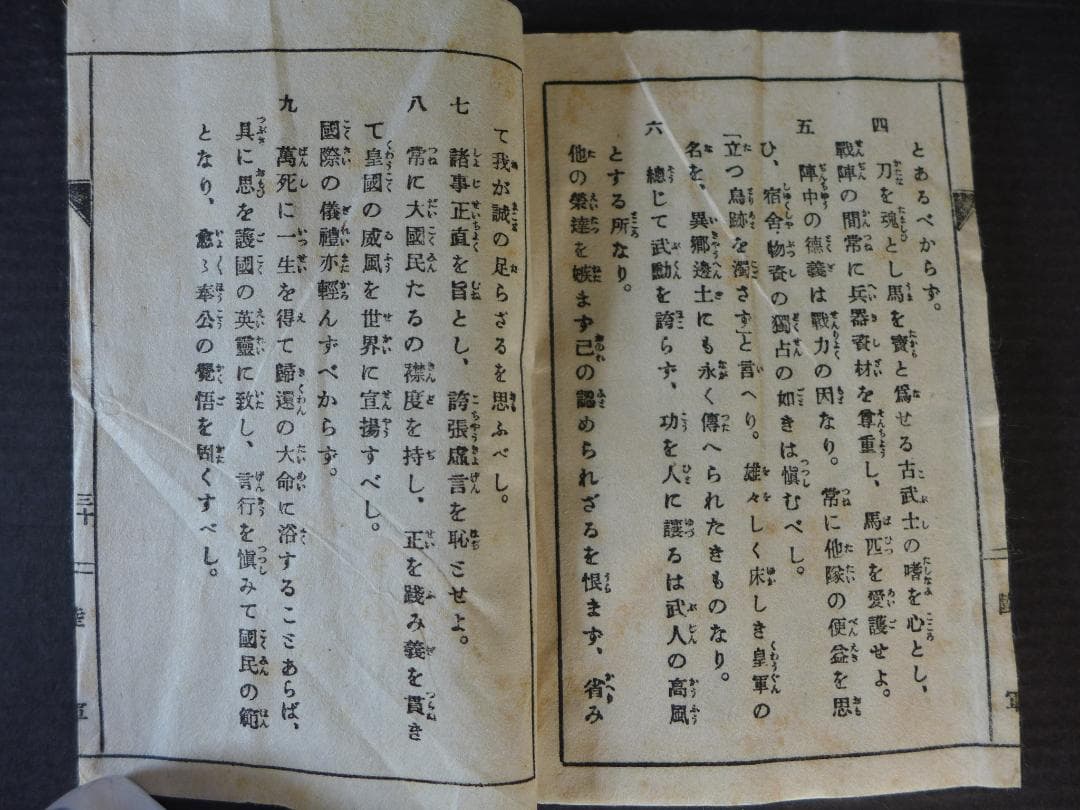 とあるべからず。
四 刀を魂とし馬を寶と爲せる古武士の嗜を心とし、
戰陣の間常に兵器資材を尊重し、馬匹を愛護せよ。
五 陣中の德義は戰力の因なり。常に他隊の便益を思
ひ、宿舍、物資の獨占の如きは愼むべし。
「立つ鳥跡を濁さず」と言へり。雄々しく床しき皇軍の
名を、異鄕邊土にも永く傳へられたきものなり。
六 總じて武勳を誇らず、功を人に讓るは武人の高風
とする所なり。
他の榮達を嫉まず己の認められざるを恨まず、省み
て我が誠の足らざるを思ふべし。
七 諸事正直を旨とし、誇張虛言を恥とせよ。
八 常に大國民たるの襟度を持し、正を踐み義を貫き
て皇國の威風を世界に宣揚すべし。
國際の儀禮亦輕んずべからず。
九 萬死に一生を得て歸還の大命に浴することあらば、
具に思を護國の英靈に致し、言行を愼みて國民の範
となり、愈々奉公の覺悟を固くすべし。
三十二